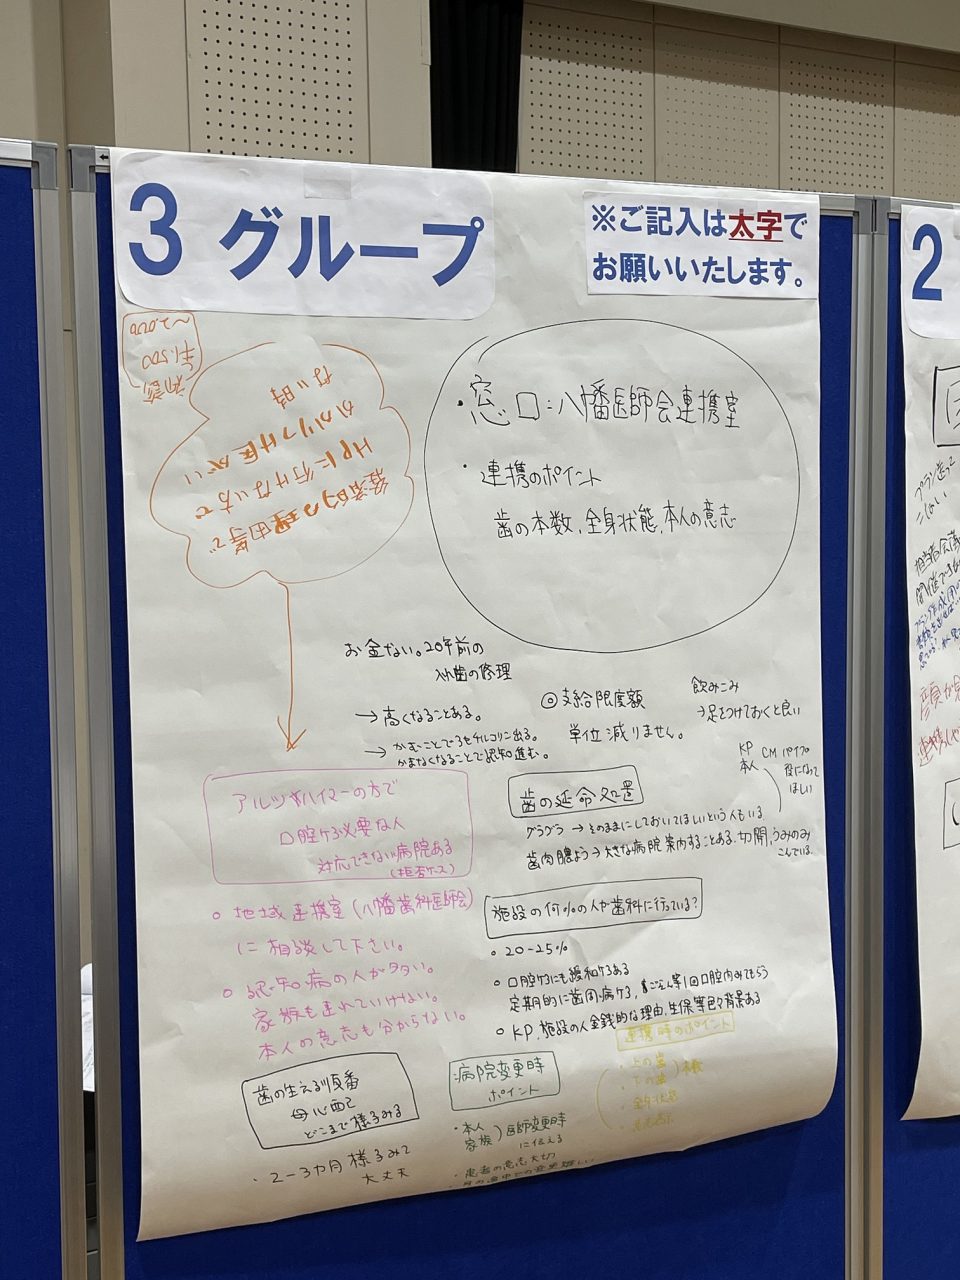 3 グループ
※ご記入は太字で
お願いいたします。
初診
¥1,500
〜2,000
経済的な理由等で
HPに行けない方で
かかりつけ医がい
ない時
・窓口:八幡医師会連携室
・連携のポイント
歯の本数、全身状態、本人の意志
お金ない。20年前の
入れ歯の修理
→高くなることある。
→かむことでアセチルコリン出る。
かまなくなることで認知進む。
◎支給限度額
単位減りません。
飲みこみ
→足をつけておくと良い
KP
本人
CM パイプ
役になって
ほしい
アルツハイマーの方で
口腔ケア必要な人
対応できない病院ある
(拒否ケース)
○地域連携室(八幡歯科医師会)
に相談して下さい。
○認知病の人が多い。
家族も連れていけない。
本人の意志も分からない。
歯の延命処置
グラグラ→そのままにしておいてほしいという人もいる
歯肉膿よう→大きな病院案内することある。切開、うみのみ
施設の何%の人が歯科に行っている?
○20-25%
○口腔ケアにも緩和ケアある
定期的に歯周病ケア、1回口腔内みてもらう
○KP、施設の人金銭的な理由、生保等色々背景ある
連携時のポイント
・上の歯
・下の歯
)本数
・全身状態
歯の生える順番
母心配
どこまで様子みる
・2-3カ月様子みて
大丈夫
病院変更時
ポイント
・本人
家族
)医師変更時
に伝える
・患者の意志大切
2